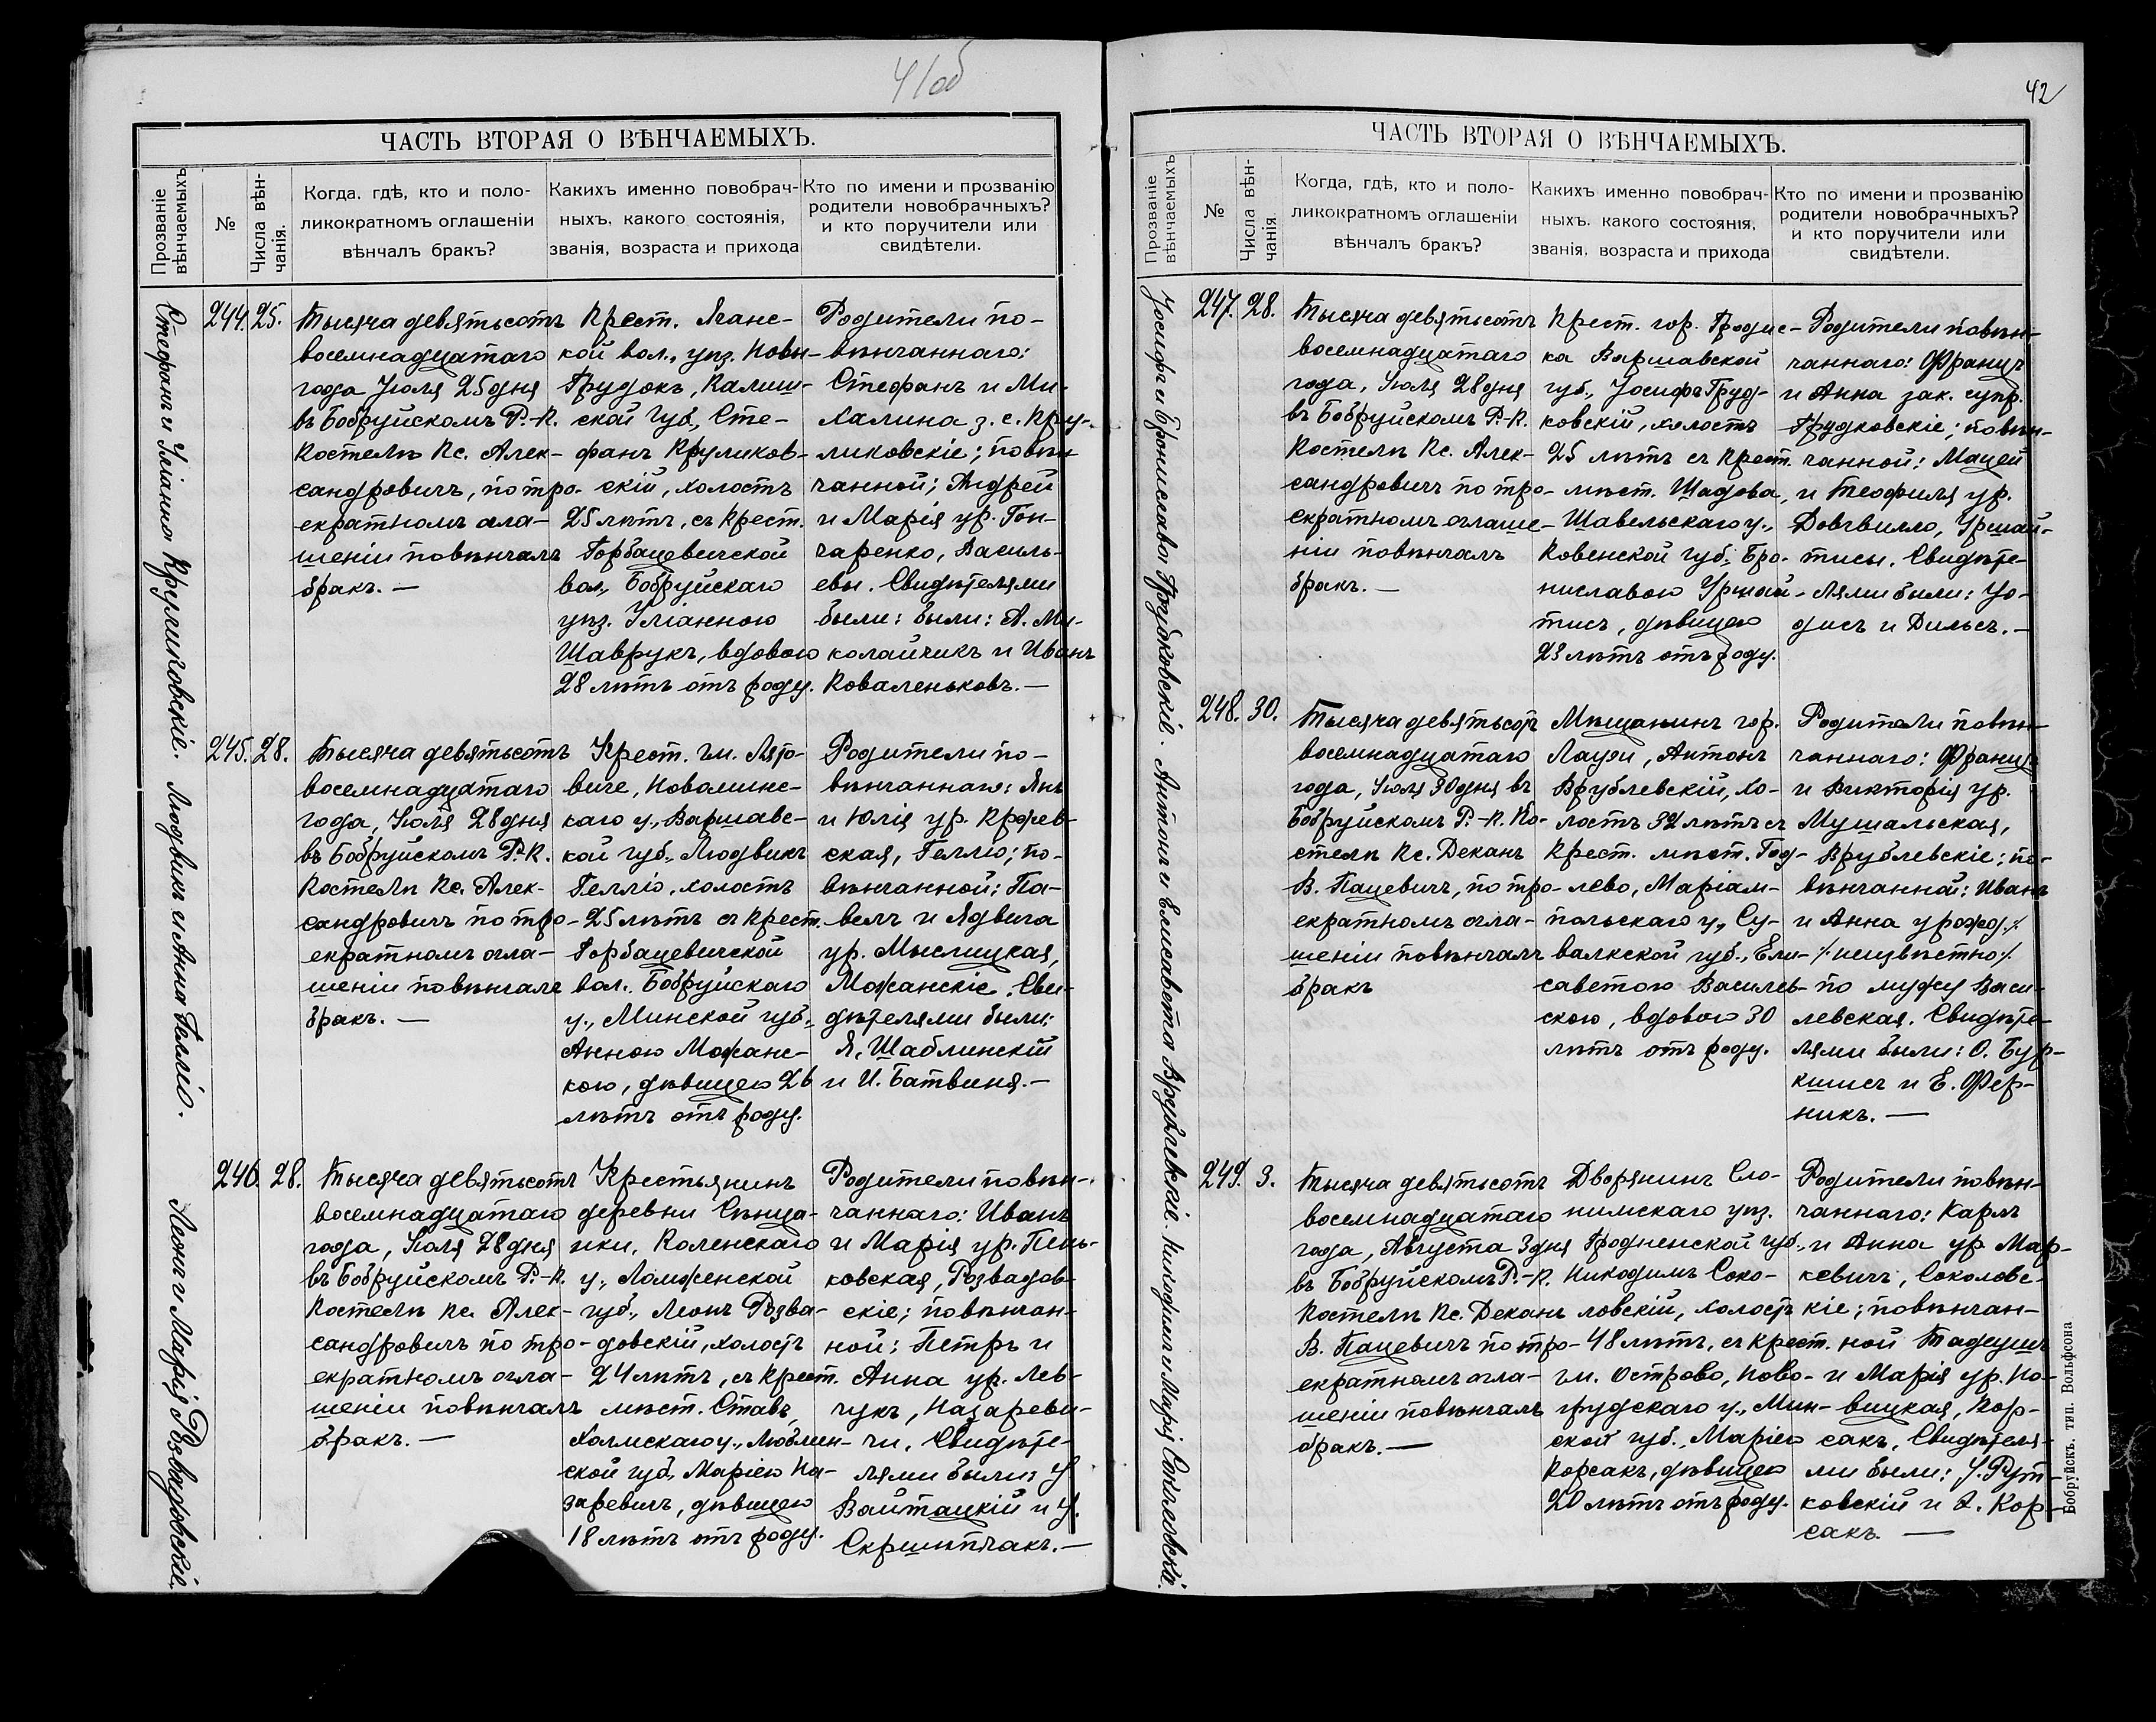 41об
ЧАСТЬ ВТОРАЯ О ВѢНЧАЕМЫХЪ.
Прозваніе вѣнчаемыхъ
№
Числа вѣн-
чанія.
Когда, гдѣ, кто и поло-
ликократномъ оглашеніи
вѣнчалъ бракъ?
Какихъ именно повобрач-
ныхъ, какого состоянія,
званія, возраста и прихода
Кто по имени и прозванію
родители новобрачныхъ?
и кто поручители или
свидѣтели.
Стефанъ и Уліанна Круликовскіе.
244. 25.
Тысяча девятьсотъ
восемнадцатаго
года Іюля 25 дня
въ Бобруйскомъ Р.-К.
Костелѣ Кс. Алек-
сандровичъ, по тро-
екратномъ огла-
шеніи повѣнчалъ
бракъ. —
Крест.
кой вол., уѣз. Новы-
Грудокъ, Калиш-
ской губ., Сте-
фанъ Круликов-
скій, холостъ
25 лѣтъ, съ крест.
Горбацевичской
вол., Бобруйскаго
уѣз. Уліанною
Шаврукъ, вдовою
28 лѣтъ отъ роду.
Родители по-
вѣнчаннаго:
Стефанъ и Ми-
халина з. с. Кру-
ликовскіе; повѣн-
чанной; Андрей
и Марія ур. Гон-
чаренко, Василь-
евы. Свидѣтелями
были: были: А. Ми-
колайчикъ и Иванъ
Коваленьковъ. —
Людвикъ и Анна Гелліо.
245. 28.
Тысяча девятьсотъ
восемнадцатаго
года, Іюля 28 дня
въ Бобруйскомъ Р.-К.
Костелѣ Кс. Алек-
сандровичъ по тро-
екратномъ огла-
шеніи повѣнчалъ
бракъ. —
Крест. гм. Лято-
виче, Новоминс-
каго у., Варшавс-
кой губ., Людвикъ
Гелліо, холостъ
25 лѣтъ съ крест.
Горбацевичской
вол., Бобруйскаго
у., Минской губ.,
Анною Можанс-
кою, дѣвицею 26
лѣтъ отъ роду.
Родители по-
вѣнчаннаго: Янъ
и Юлія ур. Крфев-
ская, Гелліо; по-
вѣнчанной: Па-
велъ и Ядвига
ур. Мыслицкая,
Можанскіе. Сви-
дѣтелями были:
Я. Шаблинскій
и И. Батвиня. —
Леонъ и Марія Розвадовскіе.
246. 28.
Тысяча девятьсотъ
восемнадцатаго
года, Іюля 28 дня
въ Бобруйскомъ Р.-К.
Костелѣ Кс. Алек-
сандровичъ по тро-
екратномъ огла-
шеніи повѣнчалъ
бракъ. —
Крестьянинъ
деревни Сѣнца-
ики, Коленскаго
у., Ломженской
губ., Леонъ Розва-
довскій, холостъ
24 лѣтъ, съ крест.
мѣст. Ставъ,
Холмскаго у., Люблин-
ской губ., Маріею На-
заревичъ, дѣвицею
18 лѣтъ отъ роду.
Родители повѣн-
чаннаго: Иванъ
и Марія ур. Пень-
ковская, Розвадов-
скіе; повѣнчан-
ной: Петръ и
Анна ур. Лев-
чукъ, Назареви-
чи. Свидѣте-
лями были: У.
Войтацкій и У.
Скршипчакъ. —
42
ЧАСТЬ ВТОРАЯ О ВѢНЧАЕМЫХЪ.
Прозваніе вѣнчаемыхъ
№
Числа вѣн-
чанія
Когда, гдѣ, кто и поло-
ликократномъ оглашеніи
вѣнчалъ бракъ?
Какихъ именно повобрач-
ныхъ, какого состоянія,
званія, возраста и прихода
Кто по имени и прозванію
родители новобрачныхъ?
и кто поручители или
свидѣтели.
Іосифъ и Брониславва Грудковскіе.
247. 28.
Тысяча девятьсотъ
восемнадцатаго
года, Іюля 28 дня
въ Бобруйскомъ Р.-К.
Костелѣ Кс. Алек-
сандровичъ по тро-
екратномъ оглаше-
ніи повѣнчалъ
бракъ. —
Крест. гор. Гродис-
ка Варшавской
губ., Іосифъ Груд-
ковскій, холостъ
25 лѣтъ съ крест.
мѣст. Шадова,
Шавельскаго у.,
Ковенской губ., Бро-
ниславою Уршай-
тисъ, дѣвицею
23 лѣтъ отъ роду.
Родители повѣн-
чаннаго: Францъ
и Анна зак. супр.
Грудковскіе; повѣн-
чанной: Мацей
и Теофиля ур.
Довгвилло, Уршай-
тисы. Свидѣте-
лями были: Іо-
дисъ и Дильсъ. —
Антонъ и Елисавета Врублевскіе.
248. 30.
Тысяча девятьсотъ
восемнадцатаго
года, Іюля 30 дня въ
Бобруйскомъ Р.-К. Ко-
стелѣ Кс. Деканъ
В. Пацевичъ, по тро-
екратномъ огла-
шеніи повѣнчалъ
бракъ
Мѣщанинъ гор.
Лауди, Антонъ
Врублевскій, хо-
лостъ 32 лѣтъ съ
крест. мѣст. Год-
лево, Маріам-
польскаго у., Су-
валкской губ., Ели-
саветою Василев-
скою, вдовою 30
лѣтъ отъ роду.
Родители повѣн-
чаннаго: Францъ
и Викторія ур.
Мушальская,
Врублевскіе; по-
вѣнчанной: Иванъ
и Анна урожд./.
/. неизвѣстно/.
по мужу Васи-
левская. Свидѣте-
лями были: О. Бур-
кшисъ и Е. Фер-
никъ. —
Никодимъ и Марія Соколовскіе.
249. 3.
Тысяча девятьсотъ
восемнадцатаго
года, Августа 3 дня
въ Бобруйскомъ Р.-К.
Костелѣ Кс. Деканъ
В. Пацевичъ по тро-
екратномъ огла-
шеніи повѣнчалъ
бракъ. —
Дворянинъ Сло-
нимскаго уѣз.
Гродненской губ.,
Никодимъ Соко-
ловскій, холостъ
48 лѣтъ, съ крест.
гм. Острово, Ново-
грудскаго у., Мин-
ской губ., Маріею
Корсакъ, дѣвицею
20 лѣтъ отъ роду.
Родители повѣн-
чаннаго: Карлъ
и Анна ур. Мар-
кевичъ, Соколовс-
кіе; повѣнчан-
ной Тадеушъ
и Марія ур. Но-
вицкая, Кор-
сакъ. Свидѣтеля-
ми были: У. Рут-
ковскій и А. Кор-
сакъ. —
Бобруйскъ. тип. Вольфсона